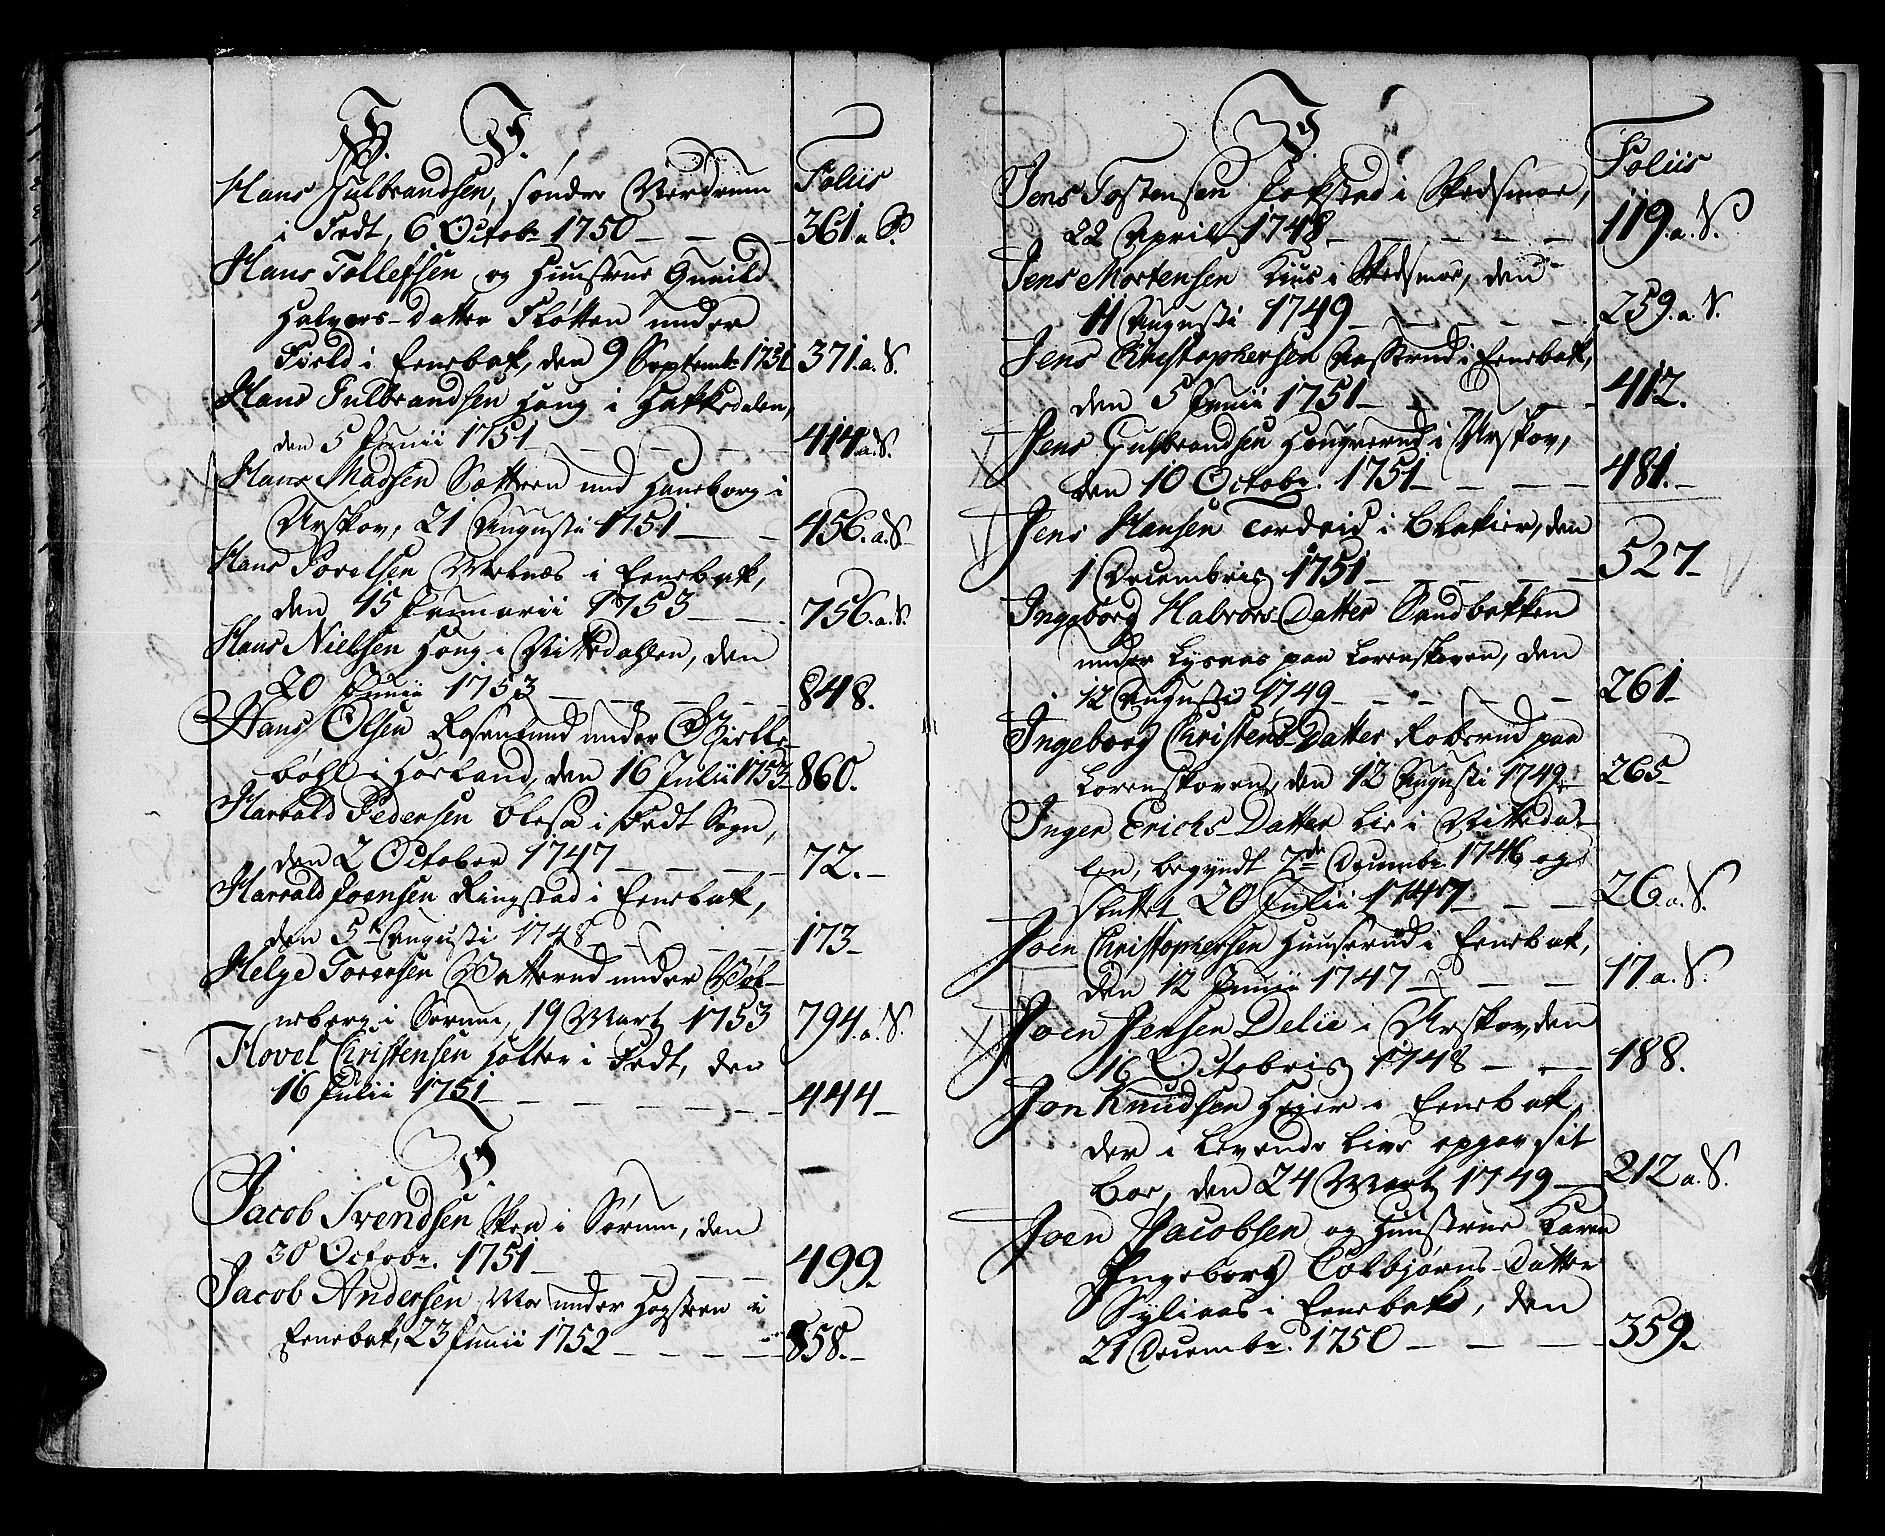 H. J.
Foliis
Hans Gulbrandsen, søndre Werdrum
i Fedt, 6 Octobr 1750 — — — 361.a S.
Hans Tollefsen og Huustrue Gunild
Halvors-Datter Fløtten under
Field i Enebak, den 9 Septembr 1751 371.a.S.
Hans Gulbrandsen Haug i Hakkedalen,
den 5 Junii 1751 — — — 414.a.S.
Hans Madsen Sætteren und Haneborg i
Urskov, 21 Augusti 1751 — — 456.a.S.
Hans Povelsen Webnæs i Enebak,
den 15 Januarii 1753 — — 756.a.S.
Hans Nielsen Haug i Nittedahlen, den
20 Junii 1753 — — — 848.
Hans Olsen Rosenlund under Gielle-
bøhl i Hørland, den 16 Julii 1753 860.
Harrald Pedersen i Fedt Sogn,
den 2 October 1747 — — — 72.
Harrald Joensen Ringstad i Enebak,
den 5te Augusti 1748 — — — 173
Helge Torersen under
i Sørum, 19 Marty 1753 794.a.S.
Hovel Christensen Holter i Fedt, den
16 Julii 1751 — — — 444
J.
Jacob Svendsen Skea i Sørum, den
30 Octobr. 1751 — — — 499
Jacob Andersen Moe under Hogsteen i
Enebak, 23 Junii 1752 — — — 858.
J.
Foliis
Jens Tostensen Jokstad i Skedsmoe,
22 Aprilis 1748 — — — 119.a.S.
Jens Mortensen Kius i Skedsmoe, den
11 Augusti 1749 — — — 259.a.S.
Jens Christophersen i Enebak,
den 5 Junii 1751 — — — 412.
Jens Gulbrandsen i Urskov,
den 10 Octobr. 1751 — — — 481.
Jens Hansen Tordeid i Blakier, den
1 Decembris 1751 — — — 527
Ingebørg Halvors-Datter Sandbakken
under Lysaas paa Lorenskoven, den
12 Augusti 1749 — — — 261
Ingeborg Christens-Datter Robsrud paa
Lorenskoven, den 12 Augusti 1749 265
Inger Erichs-Datter Lie i Nittedal-
len, begyndt 7de Decembr. 1746 og
sluttet 20 Julii 1747 — — 26.a.S.
Joen Christophersen Huuserud i Enebak,
den 12 Junii 1747 — — — 17 a.S.
Joen Jensen Delie i Urskov, den
16 Octobris 1748 — — — 188.
Jon Knudsen Heier i Enebak,
der i Levende Live opgav sit
Boe, den 24 Marty 1749 — 212 a.S.
Joen Jacobsen og Huustrue Karen
Ingeborg Tolbjørns-Datter
Syliaas i Enebak, den
21 Decembr. 1750 — — — 359